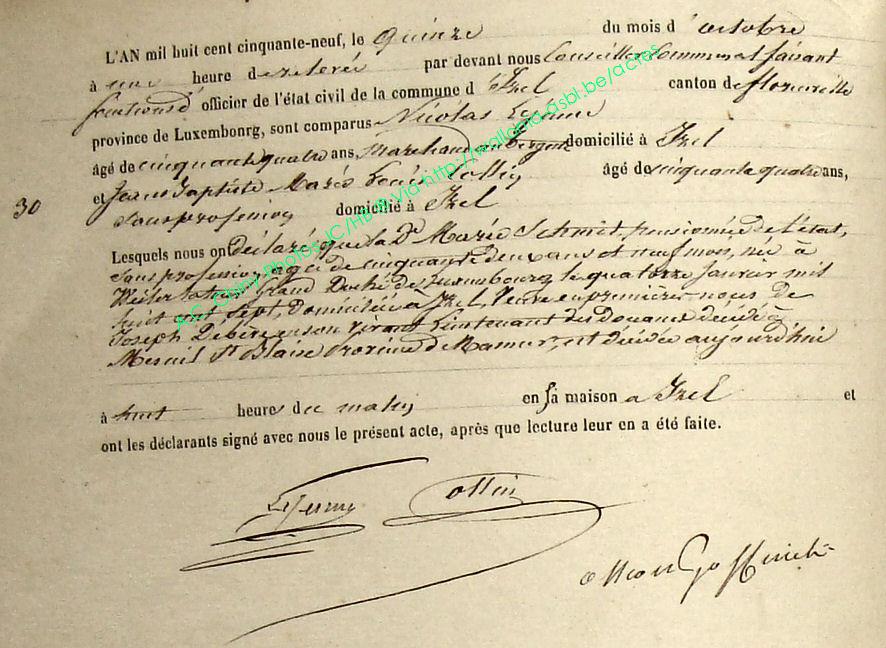 L'AN mil huit cent cinquante-neuf, le quinze du mois d'octobre
à une heure de relevée par devant nous Conseiller Communal faisant
fonctions d' officier de l'état civil de la commune d'Izel canton de florenville
province de Luxembourg, sont comparus Nicolas Lejeune
âgé de cinquante quatre ans, Marchand domicilié à Izel
et Jean Baptiste Marie Collin âgé de cinquante quatre ans,
30
Sans profession domicilié à Izel
Lesquels nous ont Déclaré que la De Marie Schmit, pensionnée de l'état,
Sans profession, agée de cinquante deux ans et neuf mois, née à
Grand Duché de Luxembourg le quatorze Janvier mil
huit cent Sept, domiciliée à Izel, Veuve en premières noces de
Joseph en son vivant Lieutenant des Douanes décédé à
Mesnil St Blaise Province de Namur, est décédée aujourd'hui
à huit heures du matin en sa maison à Izel et
ont les déclarants signé avec nous le présent acte, après que lecture leur en a été faite.
Lejeune Collin
A.C. Chiny Photos JC/HB @ Via http://wallonia.asbl.be/actes